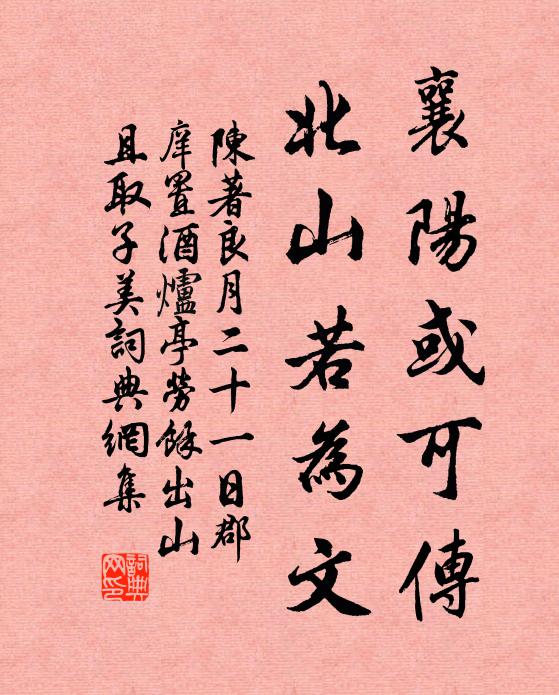 襄陽或可傳
北山若為文
陳著良月二十一日郡
庠置酒爐亭勞餘出山
且取子美詞典網集
詞典網印